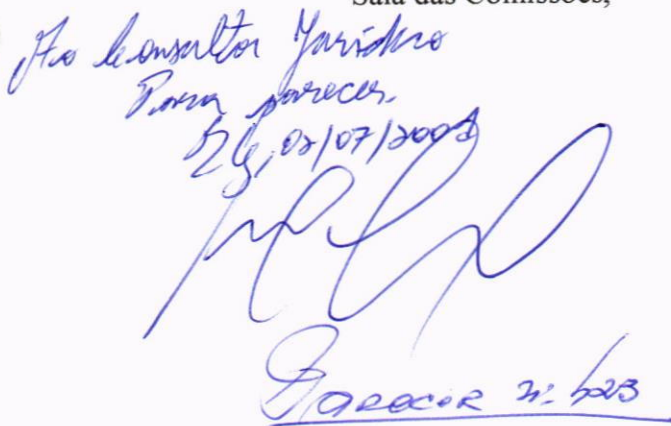 Sala das Comissões,
Ao Consultor Jurídico
Para parecer.
02/07/200
Parecer nº